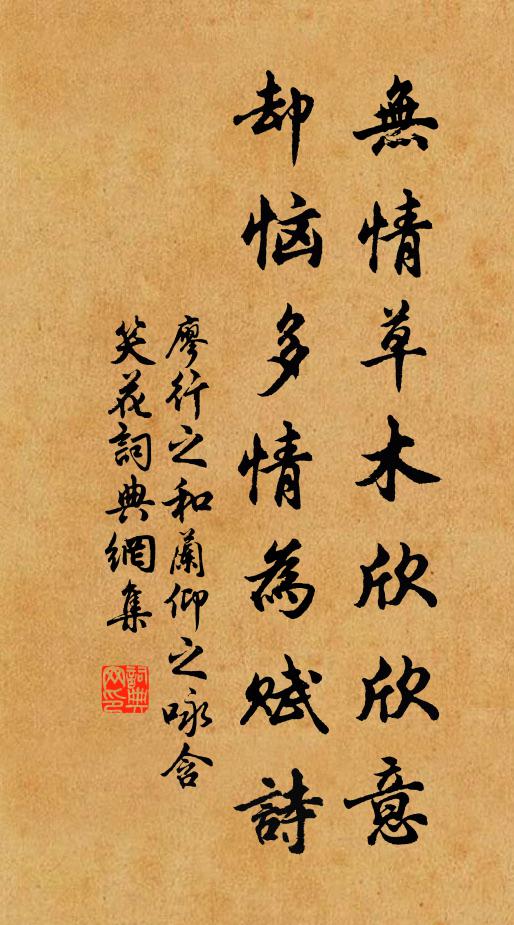 無情草木欣欣意
却惱多情為賦詩
廖行之和蘭仰之咏含
笑花詞典網集
詞典网印